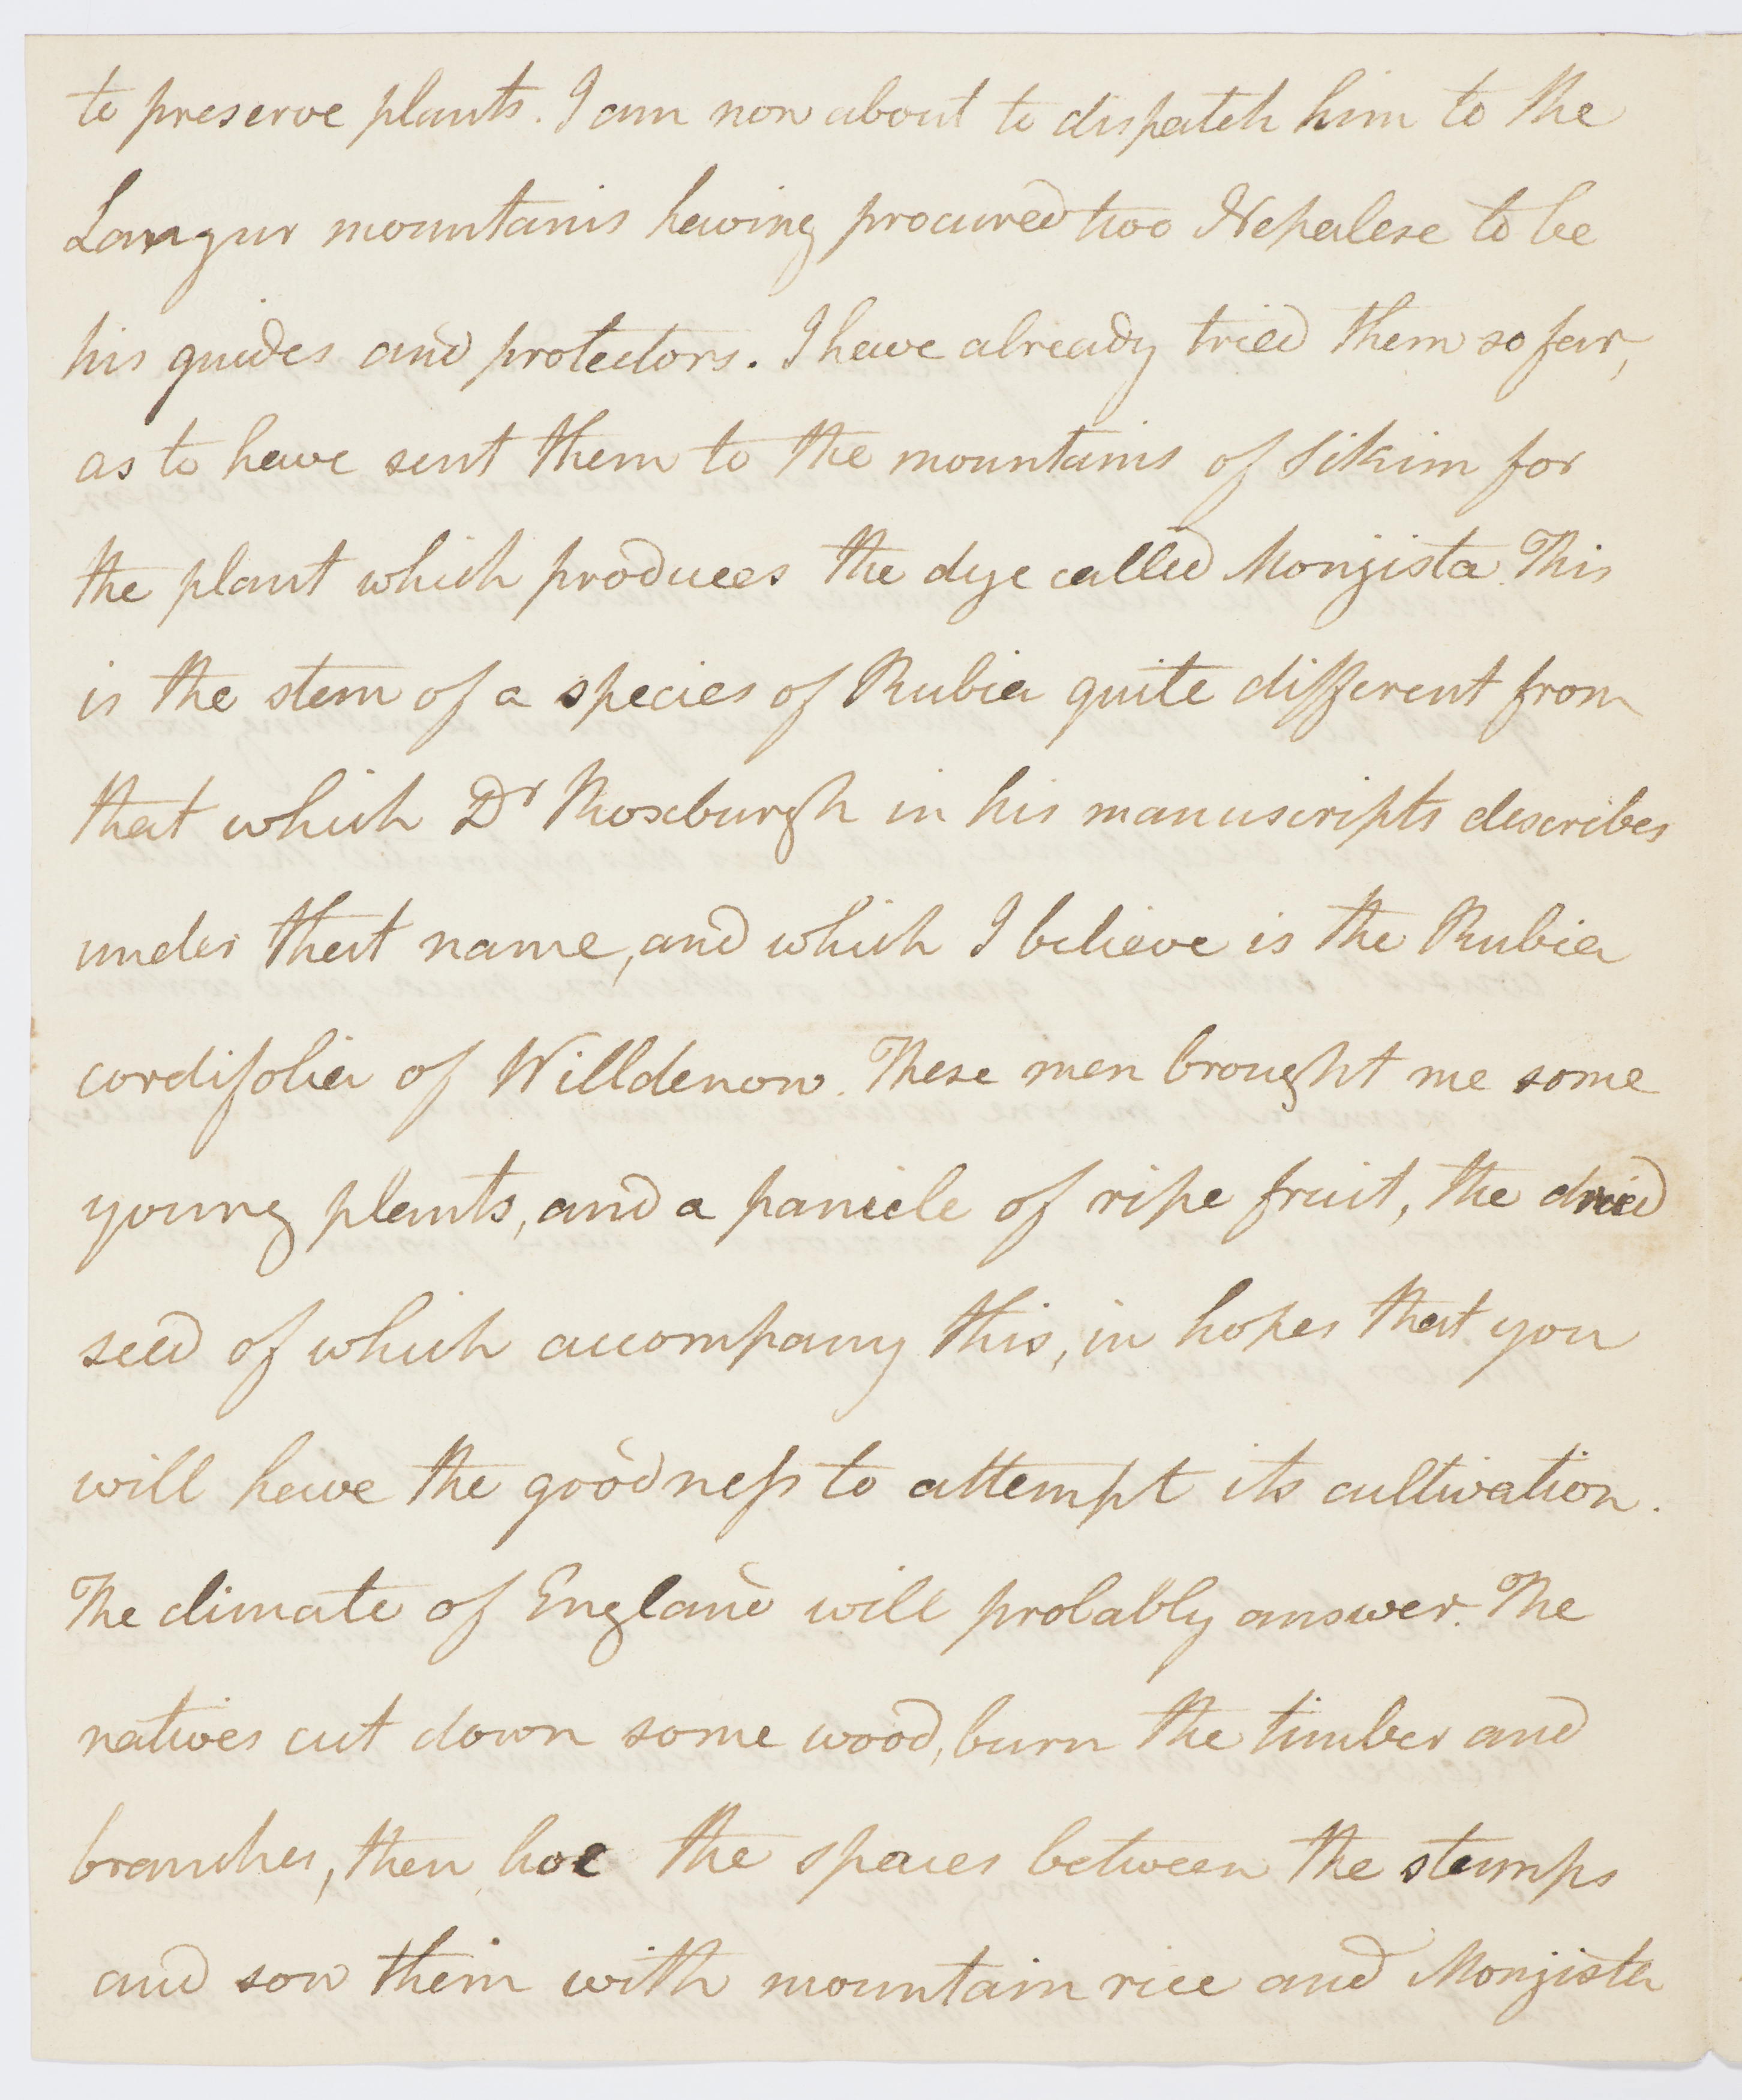 to preserve plants. I am now about to dispatch him to the
Langur mountains having procured two Nepalese to be
his guides and protectors. I have already tried them so far,
as to have sent them to the mountains of Sikim for
the plant which produces the dye called Monjista. This
is the stem of a species of Rubia quite different from
that which Dr Roxburgh in his manuscripts describes
under that name, and which I believe is the Rubia
cordifolia of Willdenow. These men brought me some
young plants, and a panicle of ripe fruit, the dried
seed of which accompany this, in hopes that you
will have the goodness to attempt its cultivation.
The climate of England will probably answer. The
natives cut down some wood, burn the timber and
branches, then hoe the spaces between the stumps
and sow them with mountain rice and Monjista